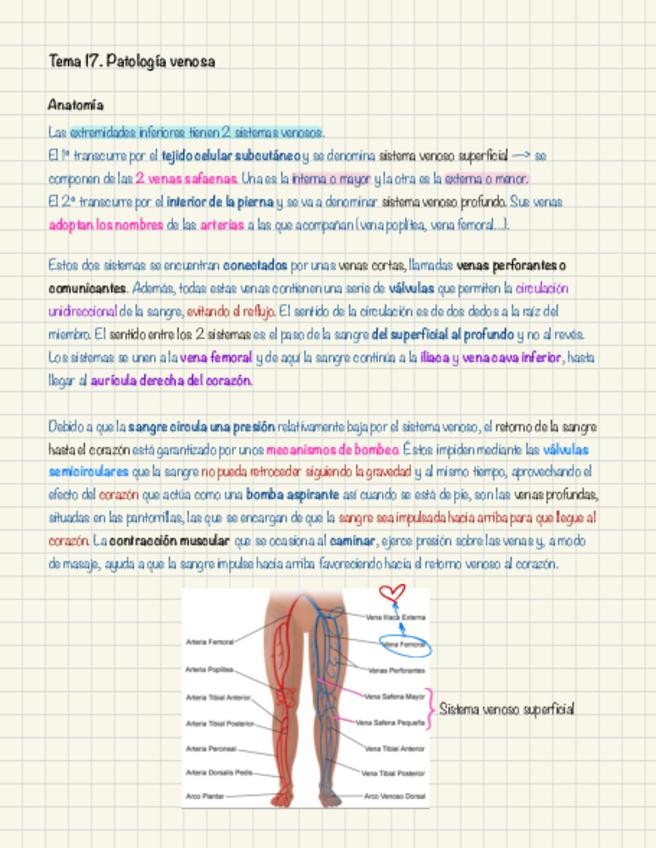 Tema 17. Patología venosa
Anatomía
Las extremidades inferiores tienen 2 sistemas venosos.
El 1º transcurre por el tejido celular subcutáneo y se denomina sistema venoso superficial —> se
componen de las 2 venas safaenas. Una es la interna o mayor y la otra es la externa o menor.
El 2º transcurre por el interior de la pierna y se va a denominar sistema venoso profundo. Sus venas
adoptan los nombres de las arterias a las que acompañan (vena poplítea, vena femoral...).
Estos dos sistemas se encuentran conectados por unas venas cortas, llamadas venas perforantes o
comunicantes. Además, todas estas venas contienen una serie de válvulas que permiten la circulación
unidireccional de la sangre, evitando el reflujo. El sentido de la circulación es de dos dedos a la raíz del
miembro. El sentido entre los 2 sistemas es el paso de la sangre del superficial al profundo y no al revés.
Los sistemas se unen a la vena femoral y de aquí la sangre continúa a la iliaca y vena cava inferior, hasta
llegar al aurícula derecha del corazón.
Debido a que la sangre circula una presión relativamente baja por el sistema venoso, el retorno de la sangre
hasta el corazón está garantizado por unos mecanismos de bombeo. Éstos impiden mediante las válvulas
semicirculares que la sangre no pueda retroceder siguiendo la gravedad y al mismo tiempo, aprovechando el
efecto del corazón que actúa como una bomba aspirante así cuando se está de pie, son las venas profundas,
situadas en las pantorrillas, las que se encargan de que la sangre sea impulsada hacia arriba para que llegue al
corazón. La contracción muscular que se ocasiona al caminar, ejerce presión sobre las venas y, a modo
de masaje, ayuda a que la sangre impulse hacia arriba favoreciendo hacia el retorno venoso al corazón.
Arteria Femoral
Arteria Poplítea
Arteria Tibial Anterior
Arteria Tibial Posterior
Arteria Peroneal
Arteria Dorsalis Pedis
Arco Plantar
Vena Iliaca Externa
Vena Femoral
Venas Perforantes
Vena Safena Mayor
Vena Safena Pequeña
Vena Tibial Anterior
Vena Tibial Posterior
Arco Venoso Dorsal
Sistema venoso superficial